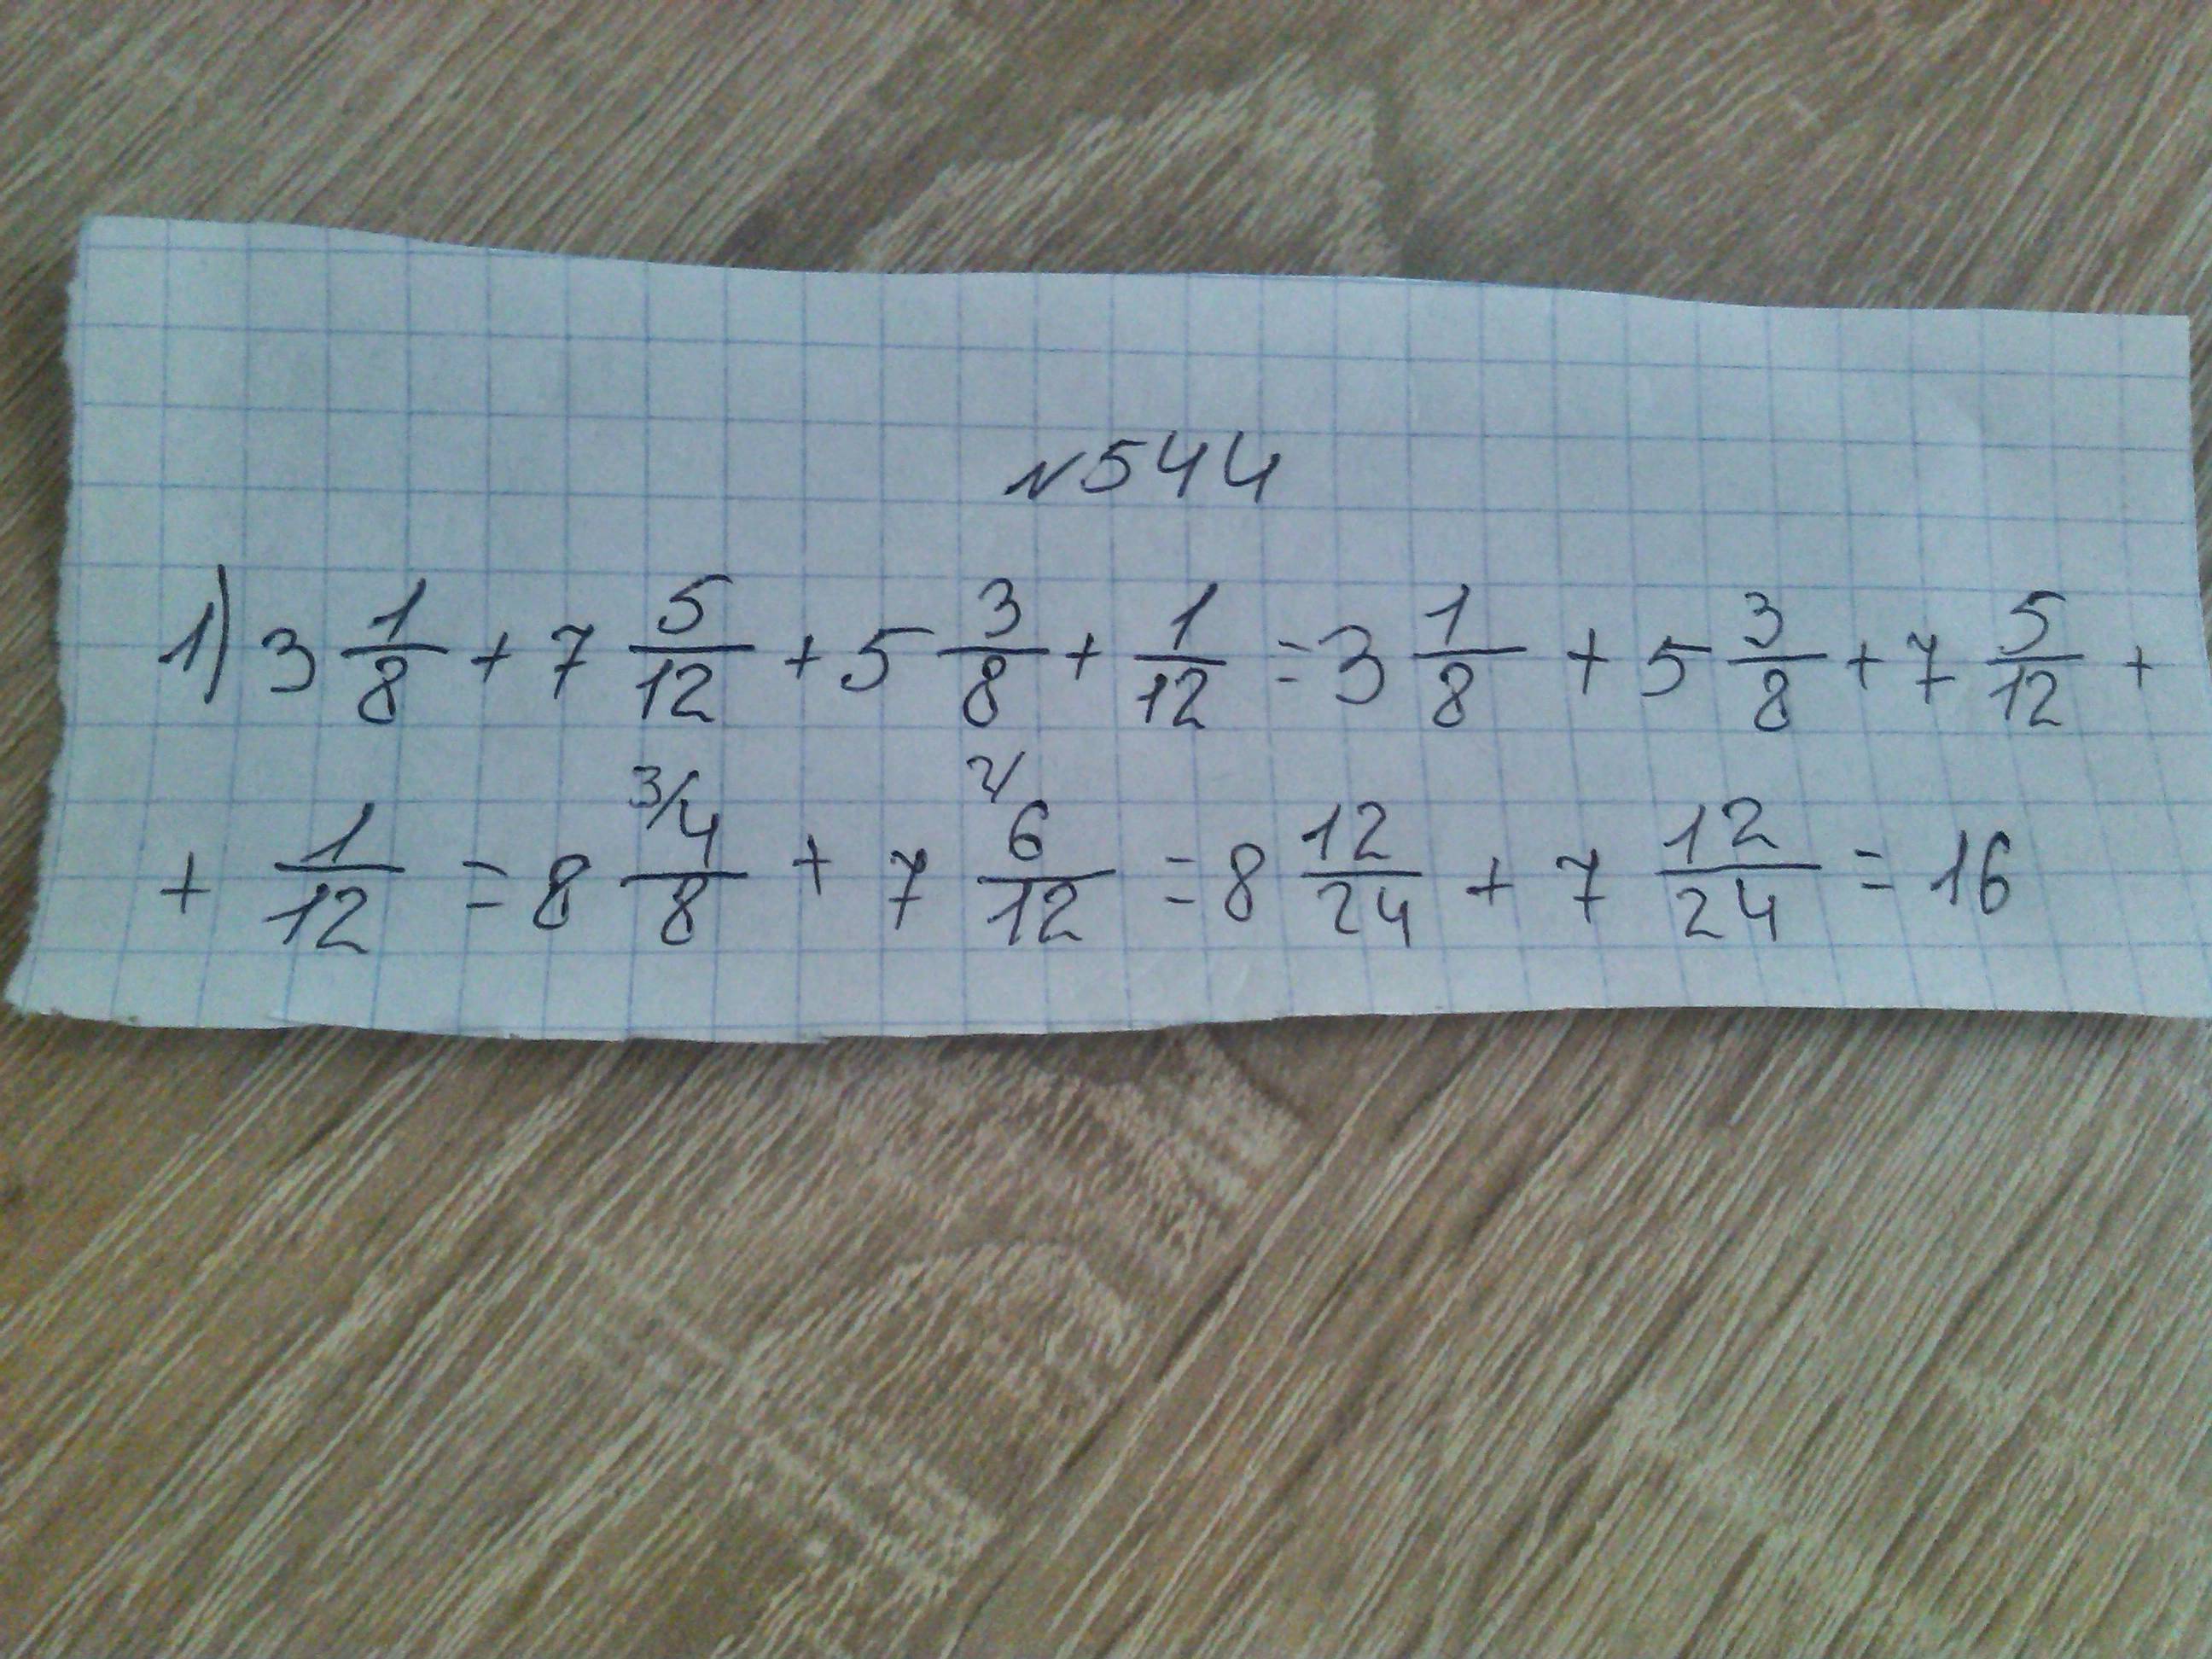 №544
1) 3 1/8 + 7 5/12 + 5 3/8 + 1/12 = 3 1/8 + 5 3/8 + 7 5/12 +
+ 1/12 = 8 3/ 4/8 + 7 2/ 6/12 = 8 12/24 + 7 12/24 = 16